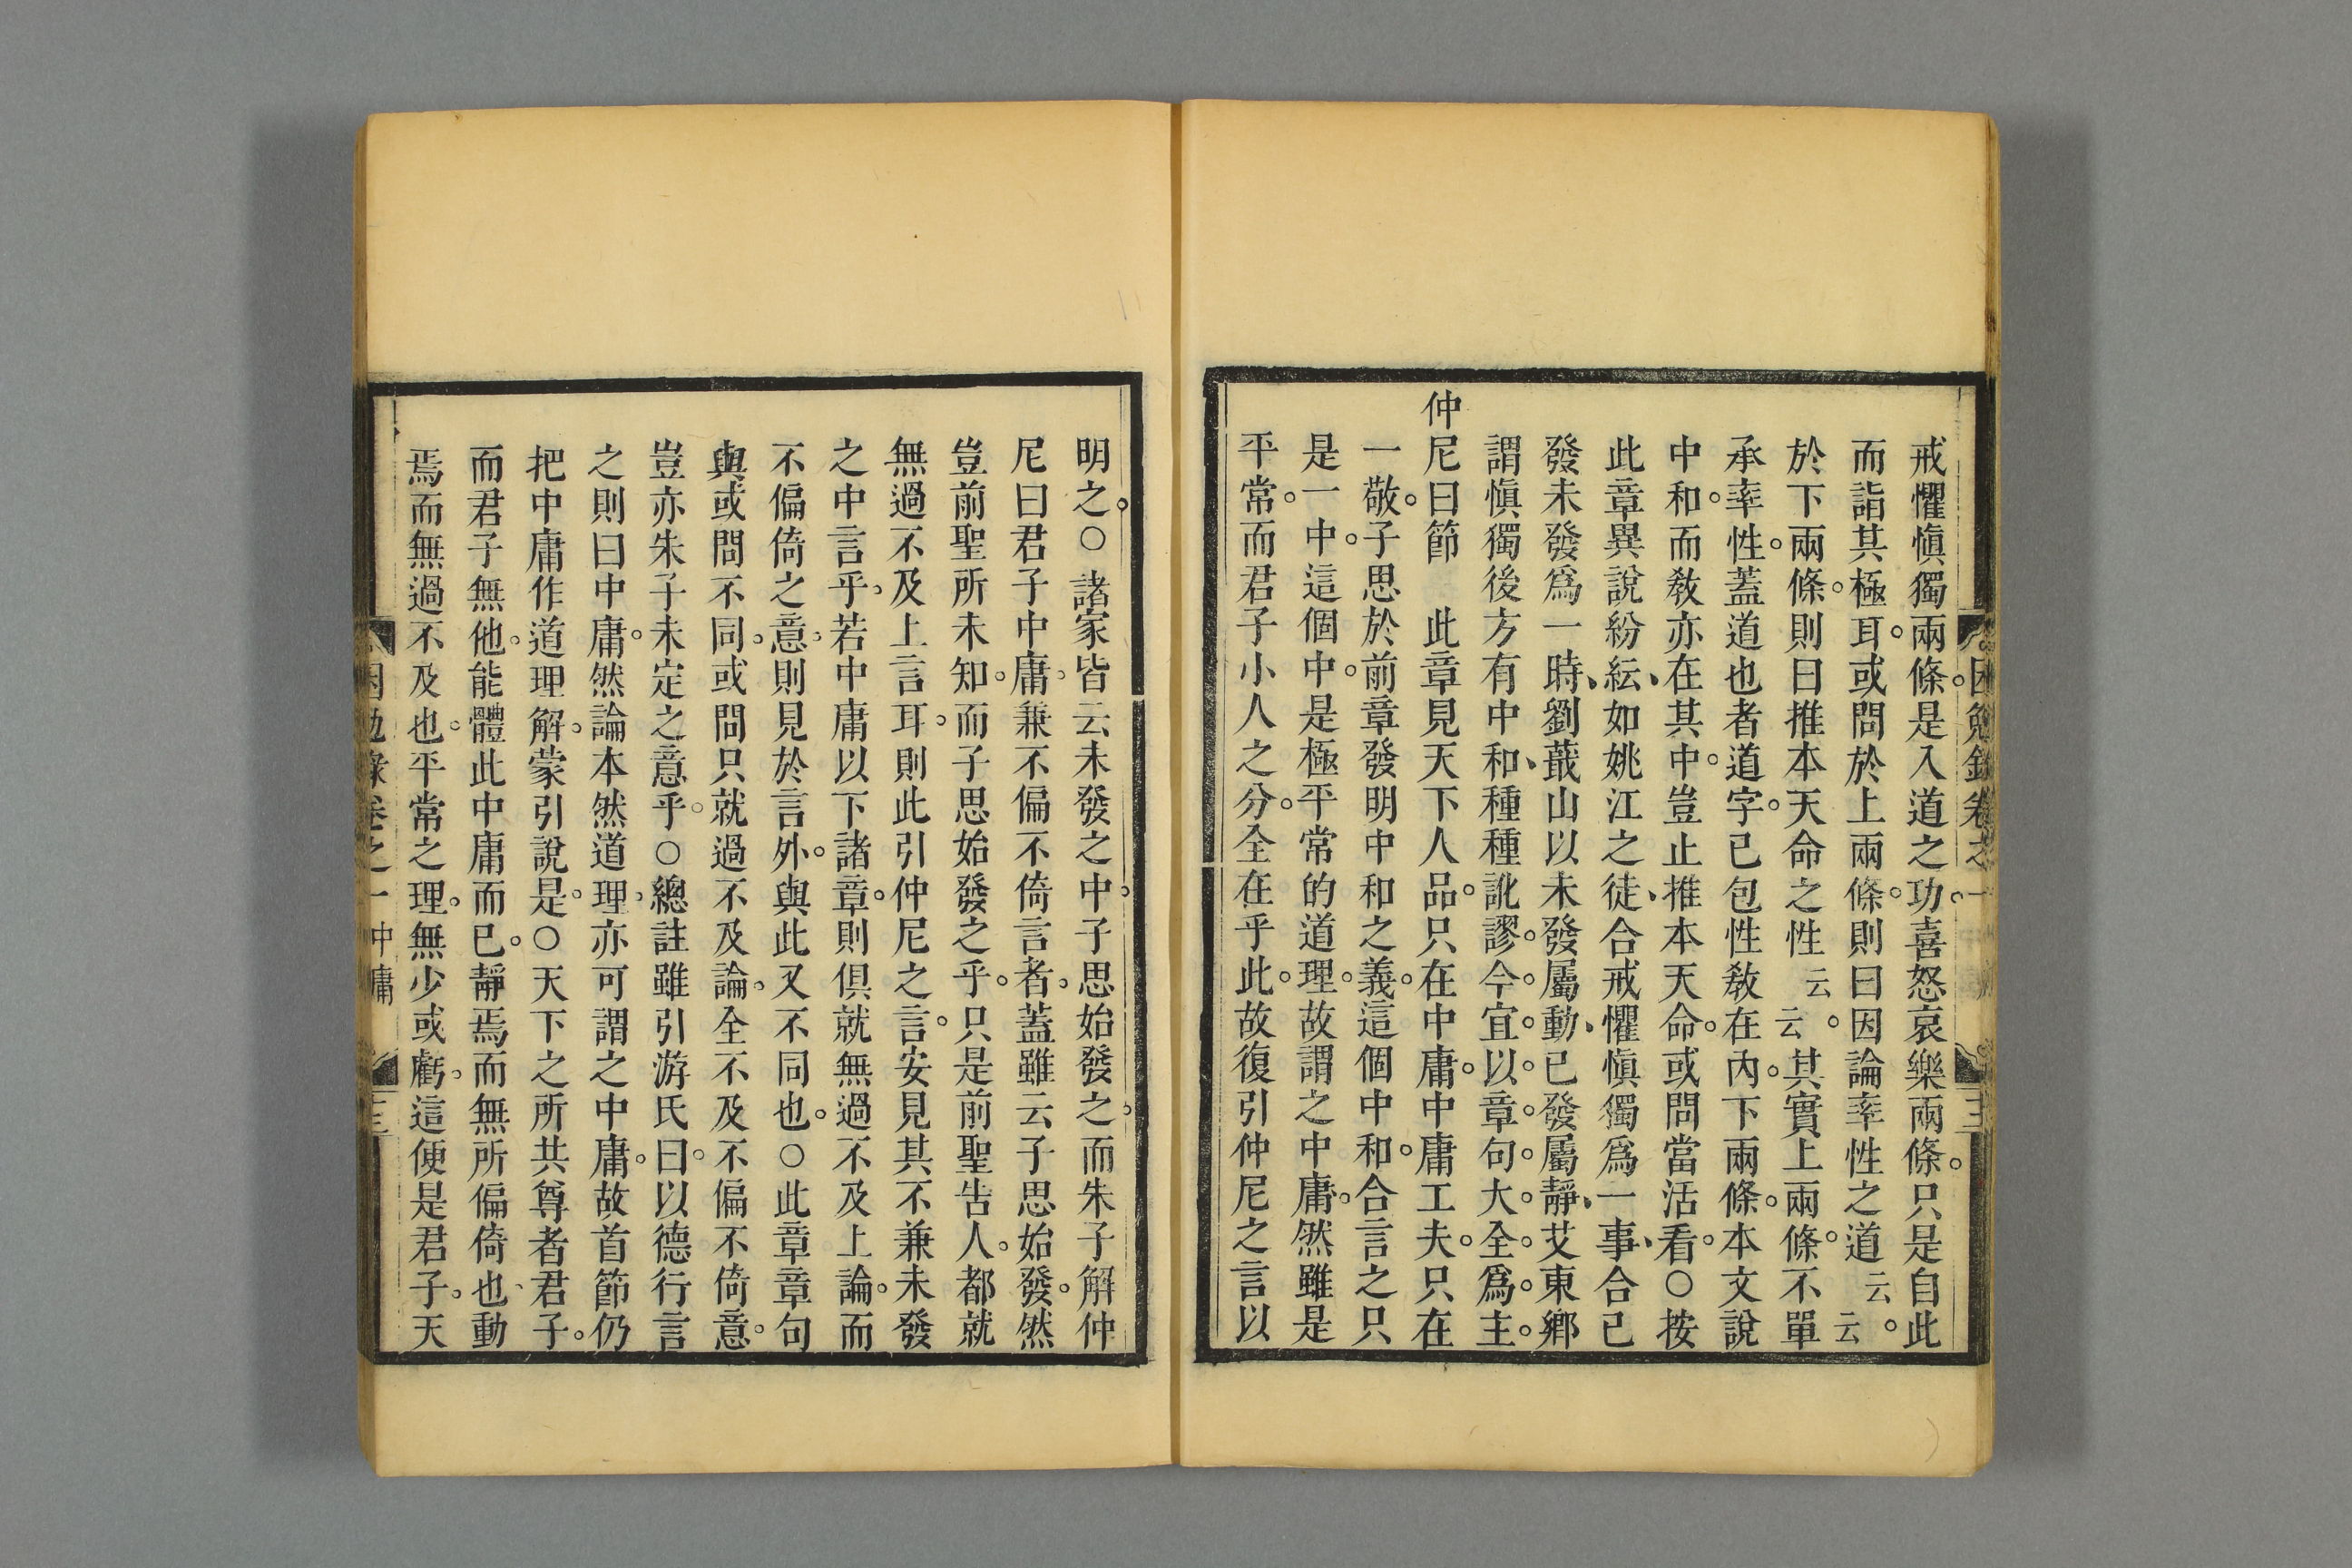 戒懼愼獨兩條。是入道之功。喜怒哀樂兩條。只是自此
而詣其極耳。或問於上兩條。則曰因論率性之道云云。
於下兩條。則曰推本天命之性云云。其實上兩條。不單
承率性。蓋道也者道字。已包性敎在內。下兩條。本文說
中和。而敎亦在其中。豈止推本天命。或問當活看。○按
此章異說紛紜、如姚江之徒、合戒懼愼獨爲一事、合已
發未發爲一時、劉蕺山以未發屬動、已發屬靜、艾東鄉
謂愼獨後方有中和、種種訛謬。今。宜。以。章。句。大。全。爲。主。
仲尼曰節　此章見天下人品。只在中庸。中庸工夫。只在
一敬。子思於前章發明中和之義。這個中和。合言之只
是一中。這個中。是極平常的道理。故謂之中庸。然雖是
平常。而君子小人之分。全在乎此。故復引仲尼之言以
困勉錄卷之一
明之。○諸家皆云未發之中。子思始發之。而朱子解仲
尼曰君子中庸。兼不偏不倚言者。蓋雖云子思始發。然
豈前聖所未知。而子思始發之乎。只是前聖告人。都就
無過不及上言耳。則此引仲尼之言。安見其不兼未發
之中言乎。若中庸以下諸章。則俱就無過不及上論。而
不偏倚之意。則見於言外。與此又不同也。○此章章句
與或問不同。或問只就過不及論。全不及不偏不倚意。
豈亦朱子未定之意乎。○總註雖引游氏曰。以德行言
之則曰中庸。然論本然道理。亦可謂之中庸。故首節仍
把中庸作道理解。蒙引說是。○天下之所共尊者君子。
而君子無他。能體此中庸而已。靜焉而無所偏倚也、動
焉而無過不及也。平常之理。無少或虧。這便是君子。天
困勉錄卷之一　中庸　十三